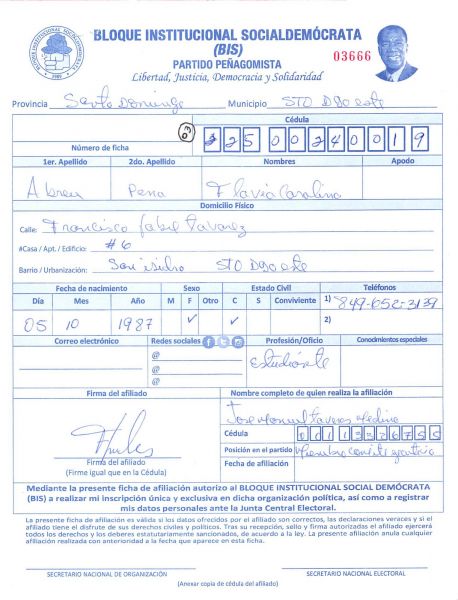 BLOQUE INSTITUCIONAL SOCIALDEMÓCRATA
(BIS)
PARTIDO PEÑAGOMISTA
Libertad, Justicia, Democracia y Solidaridad
03666
Provincia Santo Domingo Municipio STO Dgo este
Cédula
03
Número de ficha
1er. Apellido 2do. Apellido Nombres Apodo
Abreu Pena Flavia Carolina
Domicilio Físico
Calle: Francisco
#Casa / Apt. / Edificio: #6
Barrio / Urbanización: San isidro STO Dgo este
Fecha de nacimiento Sexo Estado Civil Teléfonos
Día Mes Año M F Otro C S Conviviente 1) 849-652-3139
05 10 1987 ✓ ✓ 2)
Correo electrónico Redes sociales Profesión/Oficio Conocimientos especiales
@ Estudiante
@
@
Firma del afiliado Nombre completo de quien realiza la afiliación
Jose Manuel Taveras Medina
Cédula
Posición en el partido Miembro comité ejecutivo
Fecha de afiliación
Firma del afiliado
(Firme igual que en la Cédula)
Mediante la presente ficha de afiliación autorizo al BLOQUE INSTITUCIONAL SOCIAL DEMÓCRATA
(BIS) a realizar mi inscripción única y exclusiva en dicha organización política, así como a registrar
mis datos personales ante la Junta Central Electoral.
La presente ficha de afiliación es válida si los datos ofrecidos por el afiliado son correctos, las declaraciones veraces y si el
afiliado tiene el disfrute de sus derechos civiles y políticos. Tras su recepción, sello y firma autorizadas el afiliado ejercerá
todos los derechos y los deberes estatutariamente sancionados, de acuerdo a la ley. La presente afiliación anula cualquier
afiliación realizada con anterioridad a la fecha que aparece en esta ficha.
SECRETARIO NACIONAL DE ORGANIZACIÓN SECRETARIO NACIONAL ELECTORAL
(Anexar copia de cédula del afiliado)